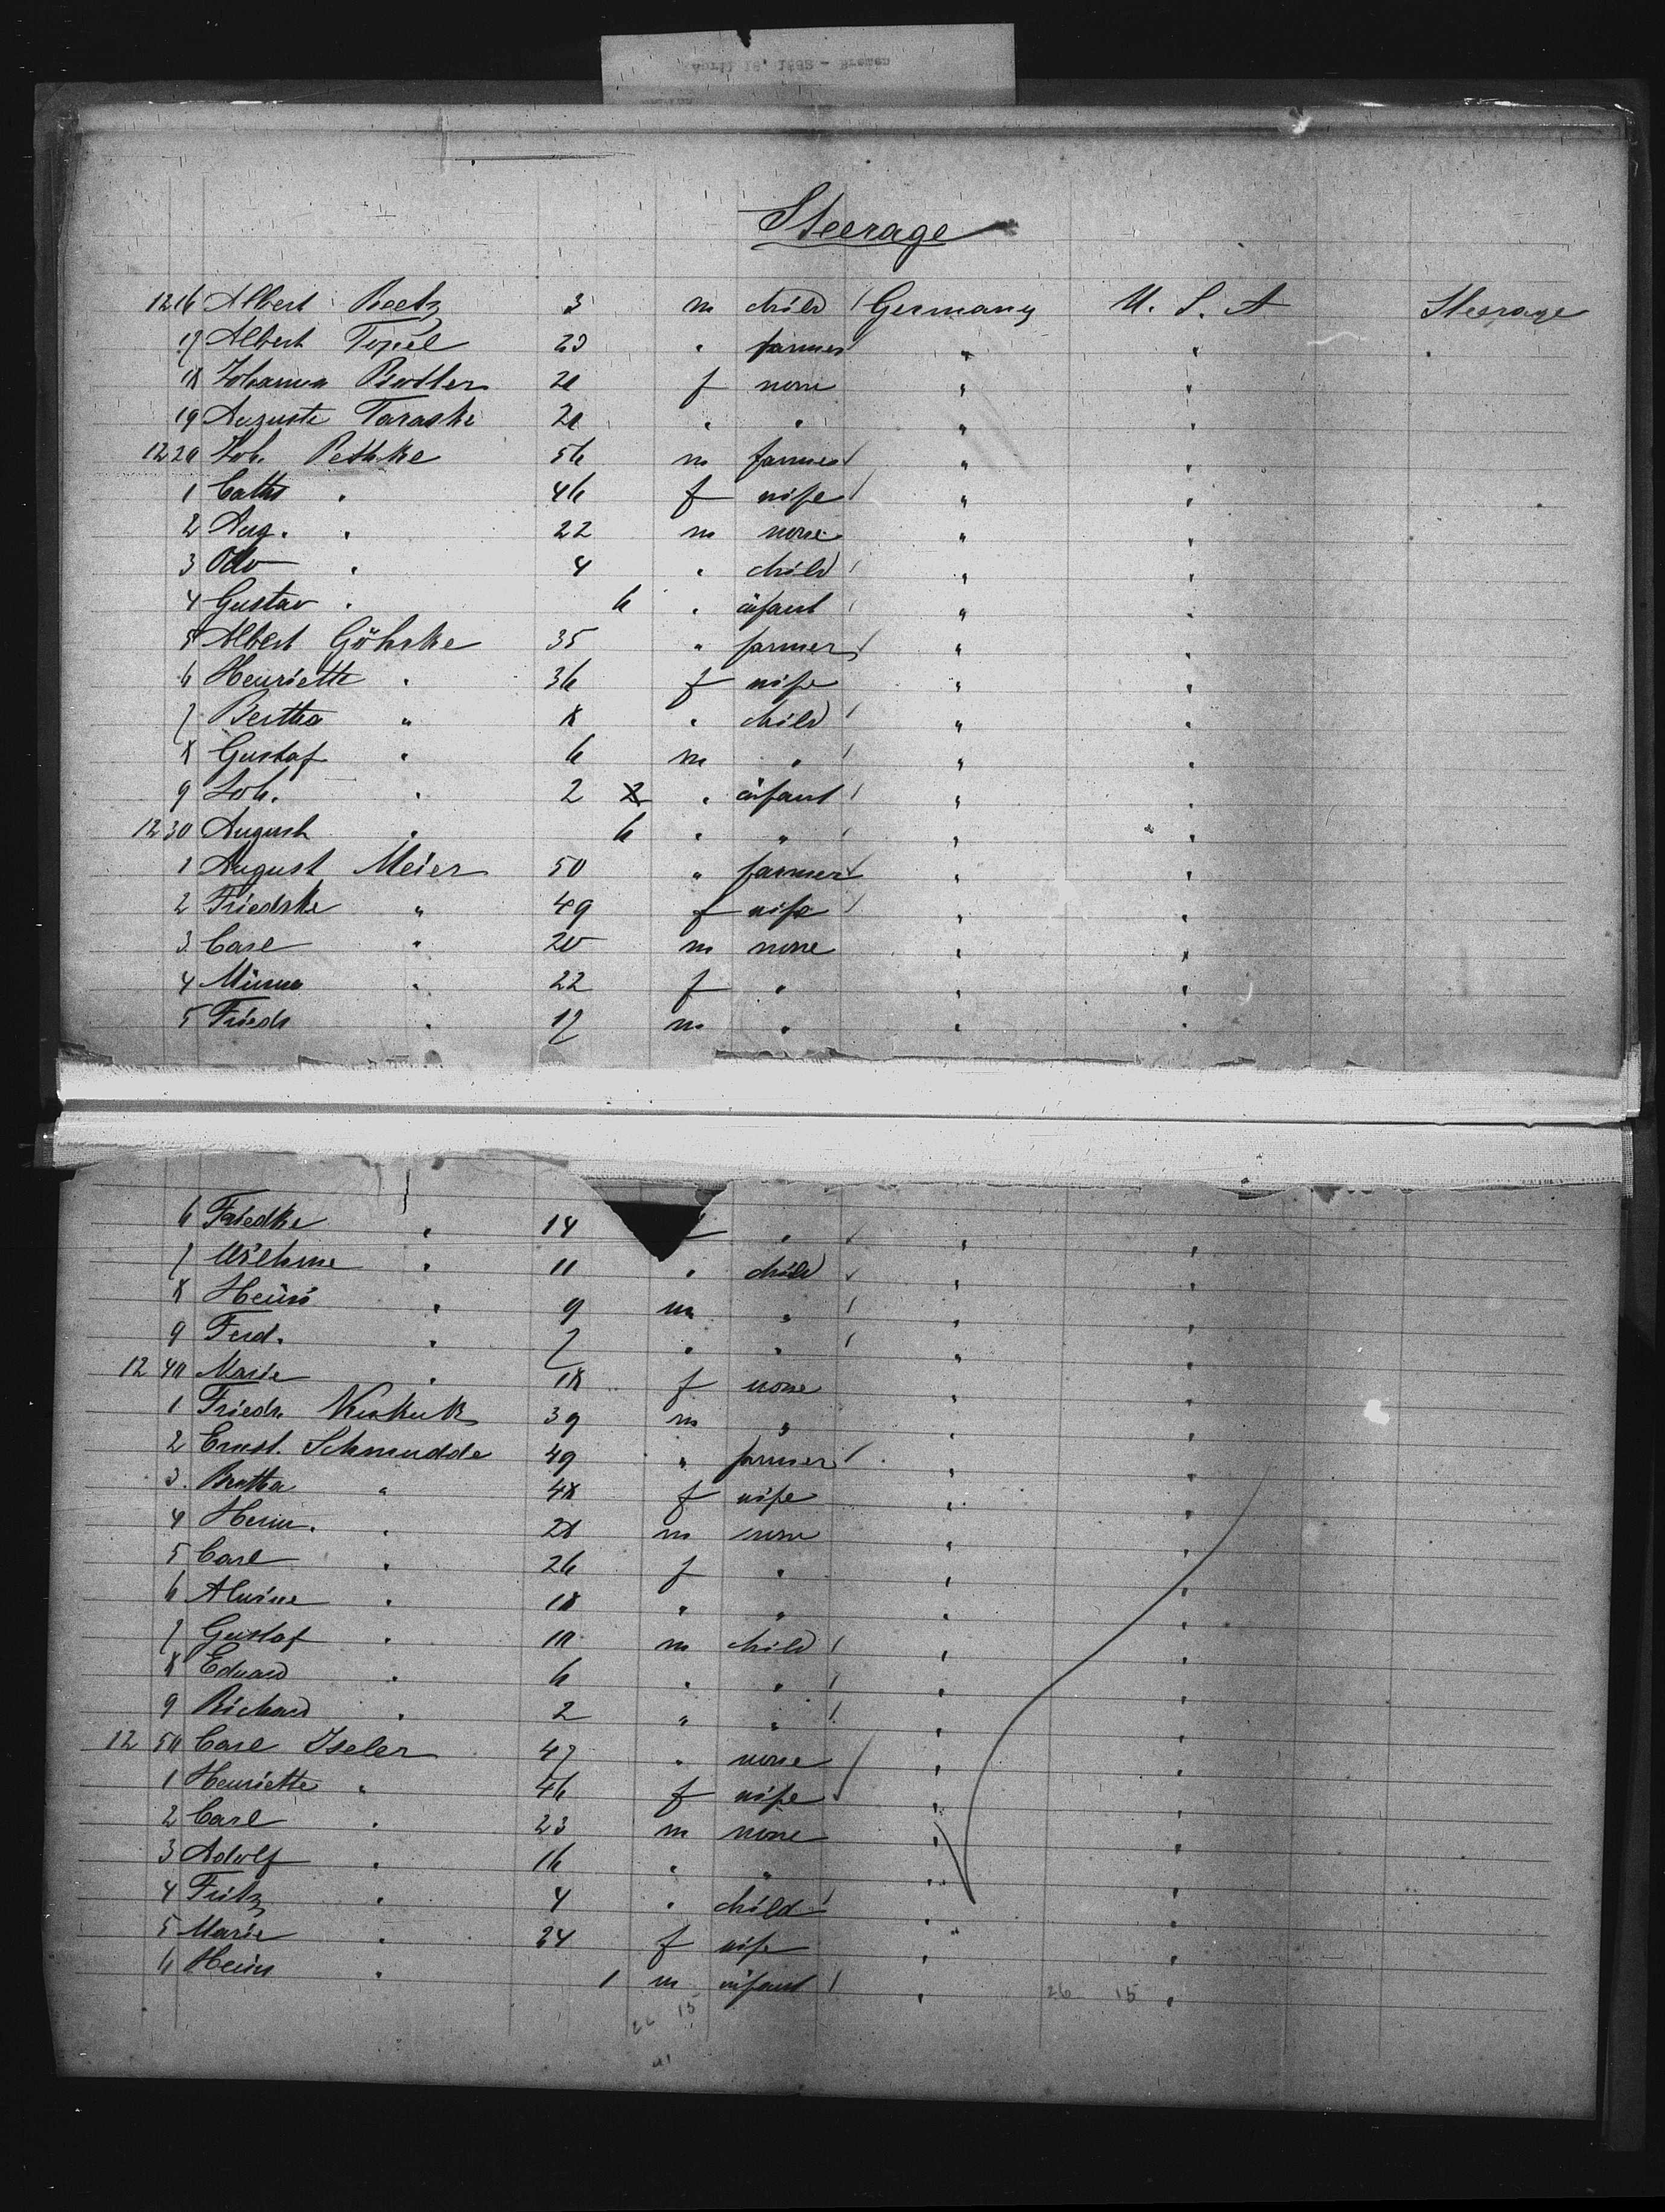 April 16, 1882 - Bremen
Steerage
1216 Albert Beetz 3 m child / Germany U. S. A Steerage
17 Albert Topiel 23 " farmer " "
18 Johanna 21 f none " "
19 Auguste Taraske 21 " " " "
1220 Joh. Pethke 56 m farmer / " "
1 Cath. " 46 f wife / " "
2 Aug. " 22 m none " "
3 Otto " 4 " child / " "
4 Gustav " 6 " infant / " "
5 Albert Göhrke 35 " farmer / " "
6 Henriette " 36 f wife " "
7 Bertha " 8 " child / " "
8 Gustaf " 6 m " / " "
9 Joh. " 2 2 " infant / " "
1230 August " 6 " " / " "
1 August Meier 50 " farmer / " "
2 Friedrke " 49 f wife / " "
3 Carl " 20 m none " "
4 Minna " 22 f " " "
5 Friedr " 17 m " " "
6 Friedke " 14 " / " "
7 Wilhme " 11 " child / " "
8 Heinr " 9 m " / " "
9 Ferd. " 7 " " / " "
1240 Marie " 18 f none " "
1 Friedr. Kukuk 39 m " " "
2 Ernst. Schmudde 49 " farmer / " "
3. Bertha " 48 f wife " "
4 Herm. " 28 m none " "
5 Carl " 26 f " " "
6 Alwine " 18 " " " "
7 Gustaf " 10 m child / " "
8 Eduard " 6 " " / " "
9 Richard " 2 " " / " "
1250 Carl Iseler 47 " none / " "
1 Henriette " 46 f wife / " "
2 Carl " 23 m none " "
3 Adolf " 16 " " " "
4 Fritz " 4 " child / " "
5 Marie " 24 f wife " "
6 Heinr " 1 m infant / " "
26 15 26 15
41